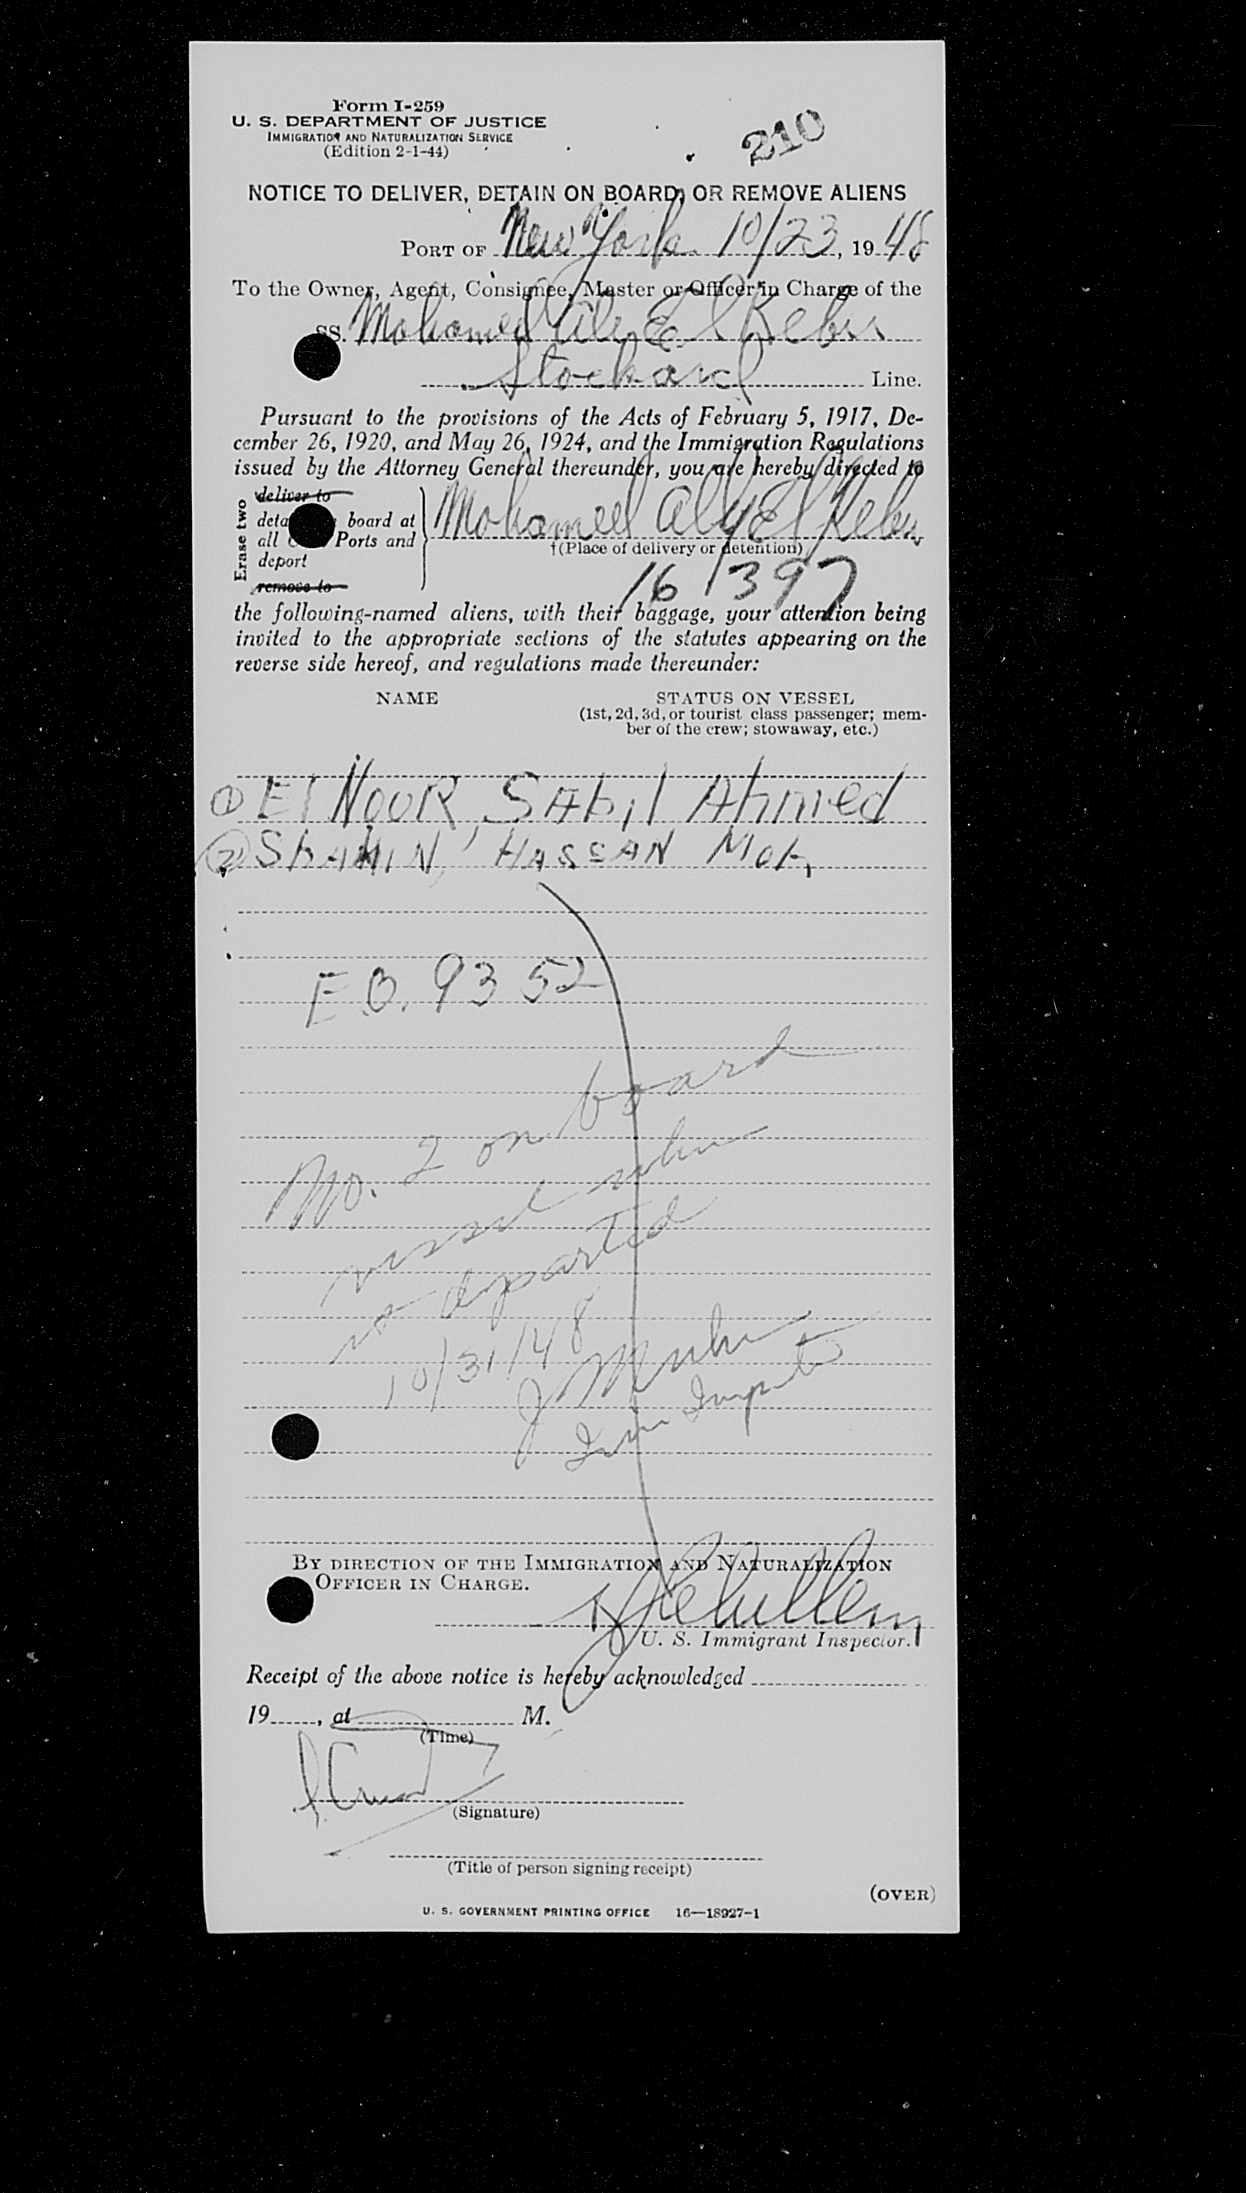 Form I-259
U. S. DEPARTMENT OF JUSTICE
IMMIGRATION AND NATURALIZATION SERVICE
(Edition 2-1-44)
210
NOTICE TO DELIVER, DETAIN ON BOARD, OR REMOVE ALIENS
PORT OF New York 10/23, 1948
To the Owner, Agent, Consignee, Master or Officer in Charge of the
SS. Mohamed Aly El Kebir
Stockard Line.
Pursuant to the provisions of the Acts of February 5, 1917, De-
cember 26, 1920, and May 26, 1924, and the Immigration Regulations
issued by the Attorney General thereunder, you are hereby directed to
Erase two
deliver to
deta board at
all Ports and
deport
remove to
Mohamed Aly El Kebir
†(Place of delivery or detention)
16 1397
the following-named aliens, with their baggage, your attention being
invited to the appropriate sections of the statutes appearing on the
reverse side hereof, and regulations made thereunder:
NAME STATUS ON VESSEL
(1st, 2d, 3d, or tourist class passenger; mem-
ber of the crew; stowaway, etc.)
① El NOUR SAbil Ahmed
② ShAHIN, HASSAN Moh
E.O. 9352
No. 2 on board
vessel when
departed
10/31/48
J
Imm Inspector
BY DIRECTION OF THE IMMIGRATION AND NATURALIZATION
OFFICER IN CHARGE.
U. S. Immigrant Inspector.
Receipt of the above notice is hereby acknowledged
19 , at M.
(Time)
(Signature)
(Title of person signing receipt)
(OVER)
U. S. GOVERNMENT PRINTING OFFICE 16—18927-1